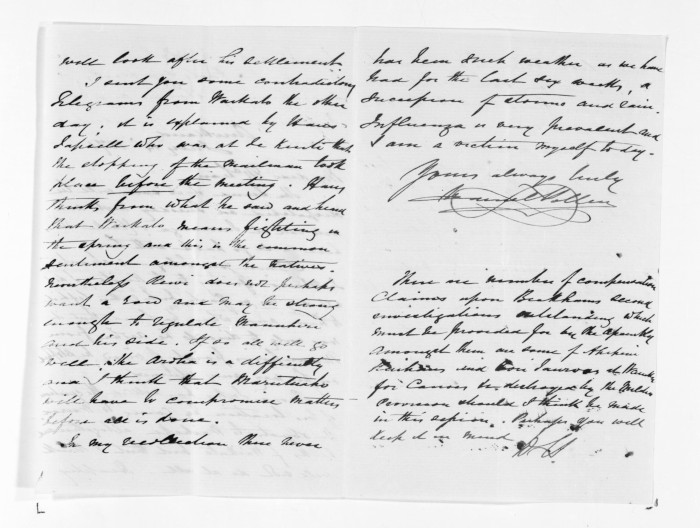 will look after his settlement
I sent you some contradictory
Telegrams from Waikato the other
day; it is explained by
who was at Te Kuiti that
the stopping of the mailman took
place before the meeting. Haus
thinks from what he saw and heard
that Waikato means fighting in
the spring and this is the common
sentiment amongst the Natives.
Nonetheless Rewi does not perhaps
want a row and may be strong
enough to regulate Manuhiri
and his side. If so all will go
well. The Aroha is a difficulty
and I think that
will have to compromise matters
before all is done.
In my recollection there never
has been such weather as we have
had for the last six weeks, a
succession of storms and rain.
Influenza is very prevalent and
I am a victim myself to day.
Yours always truly
Daniel Pollen
There are number of compensation
Claims upon Beckhams second
investigations outstanding which
must be provided for by the Assembly
amongst them are some of
and
for destroyed by the
provision should I think be made
in this session. Perhaps you will
keep it in mind